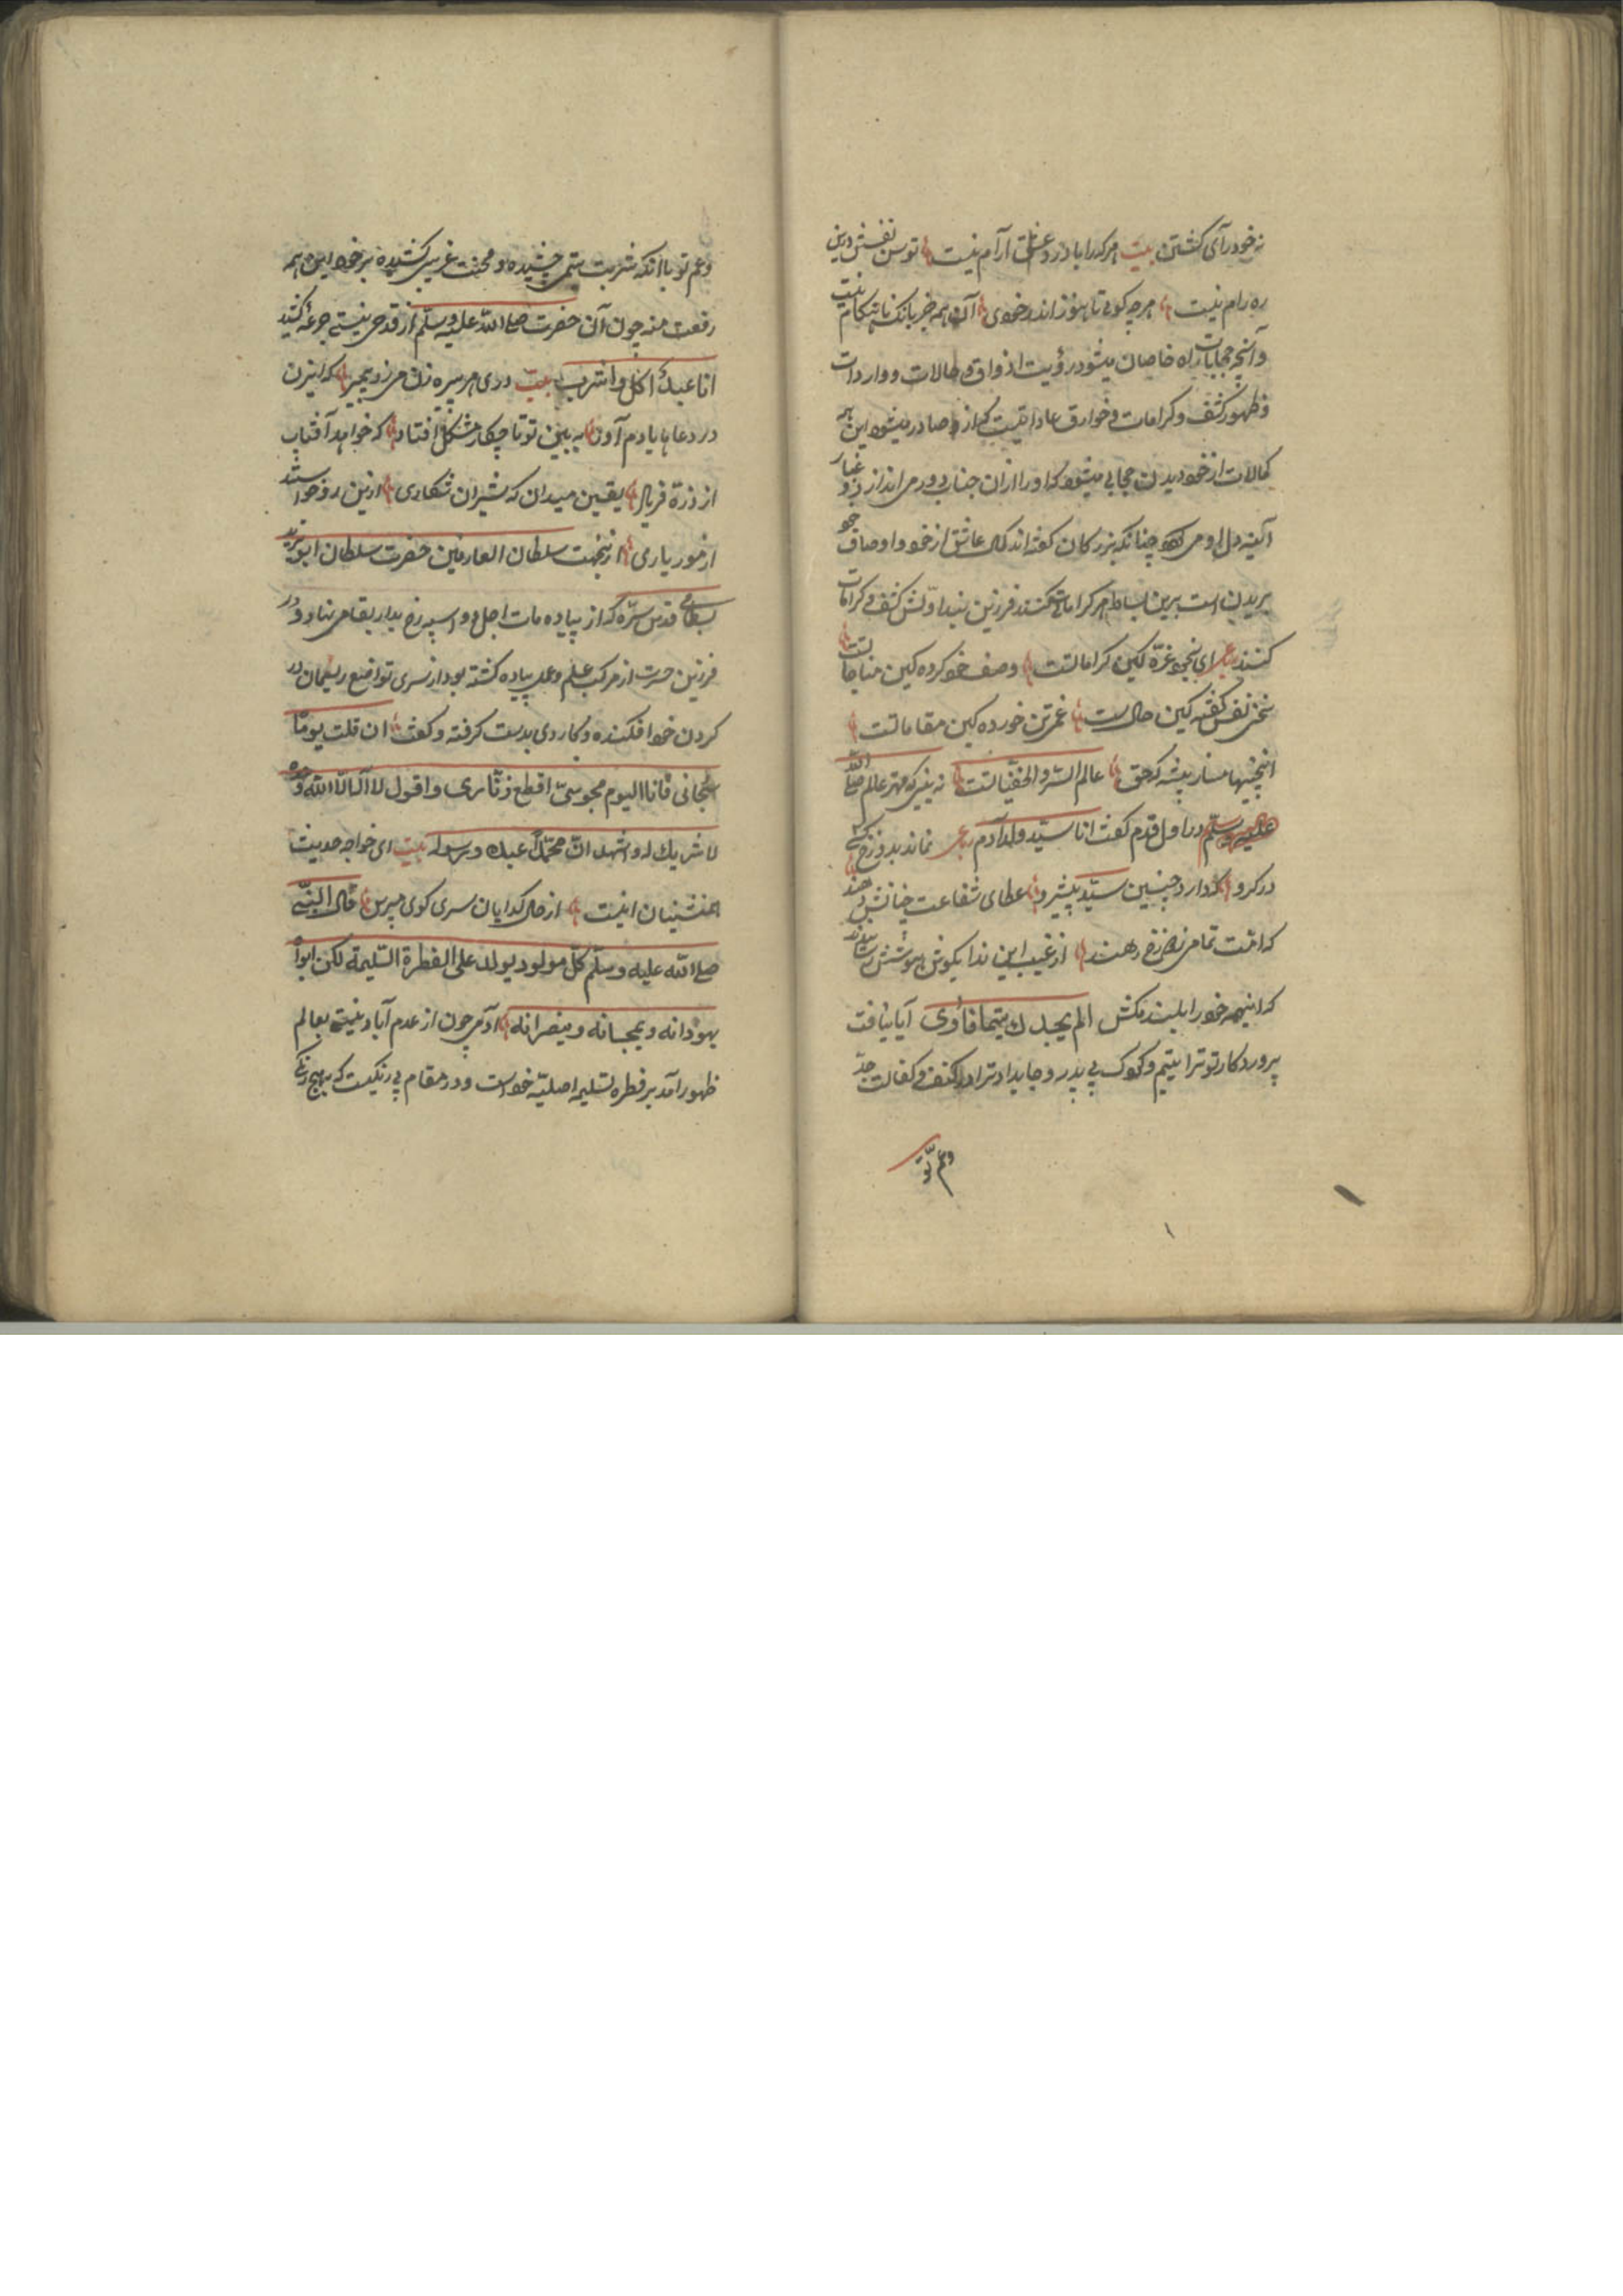 نه خود رآی کشتن بیت هر کرا با درد عشق آرام نیست توسن نفسش درین
ره رام نیست هر چه کویی تا هنوز اندر خودی آن همه جز بانک نا هنکام نیست
و آنچه حجابات راه خاصان میشود رؤیت اذواق و حالات و واردات
و ظهور کشف و کرامات و خوارق عاداتست که ازو صادر میشود این همه
کمالات از خود دیدن حجابی میشود که او را ازان جناب دور می اندازد و غبار
آیینه دل او می شود چنانکه بزرکان کفته اند کمال عاشق از خود و اوصاف خود
بریدن است برین بساط هر کرا مات کنند فرزین بنهد اولش کشف و کرامات
کنند ای بخود غره کین کراماتست وصف خود کرده کین مناجاتست
سخن نفس کفته کین حالست غم تن خورده کین مقاماتست
اینچنینها مساز پیشه که حق عالم السر و الخفیاتست نه بینی که مهتر عالم صلی الله
علیه وسلم در اول قدم کفت انا سید ولد آدم نماند بدوزخ کسی
در کرو که دارد چنین سید پیشرو عطای شفاعت چنانش دهند
که امت تمامی ز دوزخ رهند از غیب این ندا بکوش هوشش رسانیدند
که اینهمه خود را بلند مکش الم یجدك یتیما فآوی آیا نیافت
پروردکار تو ترا یتیم و کودک بی پدر و جای داد ترا در کنف و کفالت جد
و عم تو
و عم تو با آنکه شربت یتیمی چشیده و محنت غریبی کشیده بر خود این همه
رفعت منه چون آن حضرت صلی الله علیه وسلم از قدح نیستی جرعه کشید
انا عبدك اکل و اشرب بیت دری هر پیره زن میزد پیمبر که ای زن
در دعاها یادم آور به بین تو تا چکار مشکل افتاد که خواهد آفتاب
از ذره فریاد یقین میدان که شیران شکاری درین ره خواستند
از مور یاری ازینجهت سلطان العارفین حضرت سلطان ابو یزید
بسطامی قدس سره که از پیاده مات اجل و اسپه رخ بدار بقا می نهاد و در
فرزین حسرت از مرکب علم و عمل پیاده کشته بود از سری تواضع ریسمان در
کردن خود افکنده و کاردی بدست کرفته و کفت ان قلت یوما
سبحانی فانا الیوم مجوسی اقطع زناری و اقول لا اله الا الله وحده
لا شریك له و اشهد ان محمدا عبده و رسوله بیت ای خواجه حدیث
همنشینان اینست از حال کدایان سری کوی مپرس قال النبی
صلی الله علیه وسلم کل مولود یولد علی الفطرة السلیمة لکن ابواه
یهودانه و یمجسانه و ینصرانه آدمی چون از عدم آباد نیستی بعالم
ظهور آمد بر فطره سلیمه اصلیه خود است و در مقام بی رنکیست که بهیچ رنکی